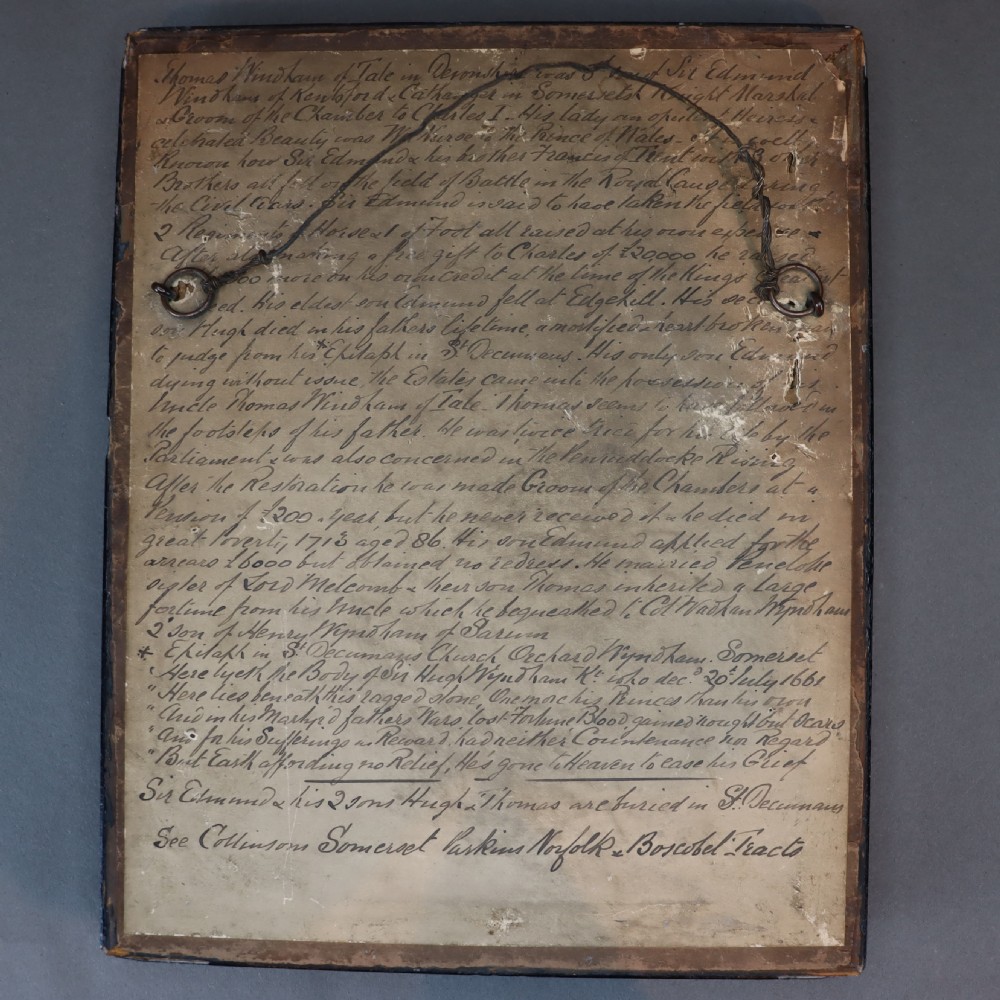 Thomas Windham of Tale in Devonshire was of Sir Edmund
Windham of Kentsford & Cathanger in Somersetsh Knight Marshal
& Groom of the Chamber to Charles I - His lady an opulent Heiress &
celebrated Beauty was Wet Nurse to the Prince of Wales - it is well
Known how Sir Edmund & his brother Francis of Trent 3 other
Brothers all fell on the field of Battle in the Royal Cause during
the Civil Wars. Sir Edmund is said to have taken the field with
2 Regiments of Horse & 1 of Foot all raised at his own expense &
After also making a free gift to Charles of £20,000 he raised
more on his own credit at the time of the Kings greatest
need. His eldest son Edmund fell at Edgehill. His second
son Hugh died in his fathers lifetime, a mortified & heart broken man
to judge from his * Epitaph in St Decumans. His only son Edmund
dying without issue, the Estates came into the possession of his
Uncle Thomas Windham of Tale. Thomas seems to have followed in
the footsteps of his father. He was twice tried for his life by the
Parliament & was also concerned in the Penruddocke Rising
After the Restoration he was made Groom of the Chambers at a
Pension of £200 a year but he never received it & he died in
great Poverty, 1713 aged 86. His son Edmund applied for the
arrears £6000 but obtained no redress. He married Penelope
sister of Lord Melcomb & their son Thomas inherited a large
fortune from his Uncle which he bequeathed to Col Wadham Wyndham
2d son of Henry Wyndham of Sarum
* Epitaph in St Decumans Church, Orchard Wyndham. Somerset
"Here lyeth the Body of Sir Hugh Wyndham Kt who decd 20th July 1661
"Here lies beneath this ragged stone, One more his Princes than his own
"And in his Martyrd fathers Wars lost Fortune Blood, gained nought but Scars
"And for his Sufferings as Reward, had neither Countenance nor Regard"
"But Earth affording no Relief, Has gone to Heaven to ease his Grief
Sir Edmund & his 2 sons Hugh & Thomas are buried in St Decumans
See Collinsons Somerset Parkins Norfolk & Boscobel Tracts